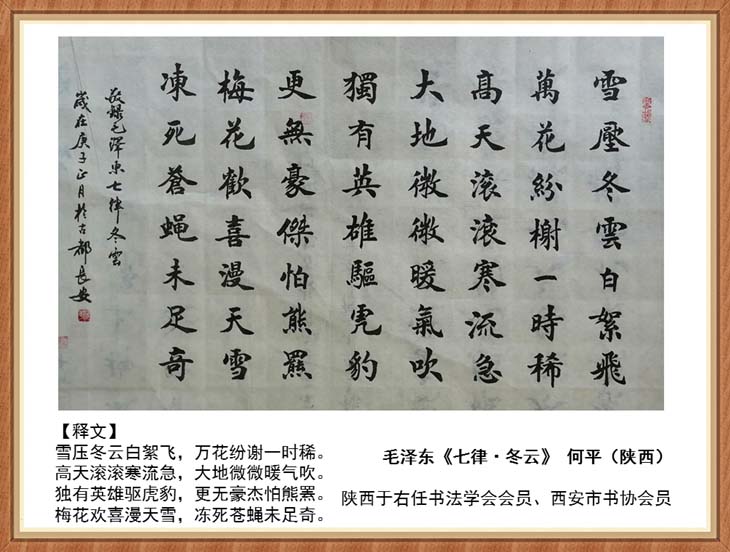 雪壓冬雲白絮飛
萬花紛榭一時稀
高天滚滚寒流急
大地微微暖氣吹
獨有英雄驅虎豹
更無豪傑怕熊羆
梅花歡喜漫天雪
凍死蒼蝇未足奇
敬録毛澤東七律冬雲
歲在庚子正月於古都長安
【释文】
雪压冬云白絮飞，万花纷谢一时稀。
高天滚滚寒流急，大地微微暖气吹。
独有英雄驱虎豹，更无豪杰怕熊罴。
梅花欢喜漫天雪，冻死苍蝇未足奇。
毛泽东《七律·冬云》 何平（陕西）
陕西于右任书法学会会员、西安市书协会员